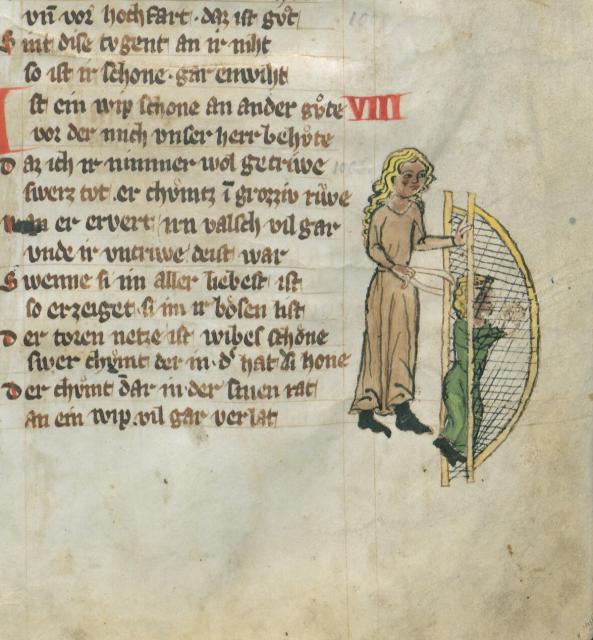 vn̄ vor hochfart · daz ist gůt
Sint dise tvgent an ir niht
so ist ir schone · gar enwiht
Ist ein wip schone an ander gůte VIII
vor der mich vnser herr behůte
Daz ich ir nimmer wol getriwe
swerz tůt · er chvmtz ī grozziv riwe
er ervert irn valsch vil gar
vnde ir vntriwe deist war
Swenne si im aller liebest ist
so erzeiget si im ir bosen list
Der toren netze ist wibes schone
swer chvmt der in · dͬ hat hone
Der chvmt dar in der sinen rat
an ein wip · vil gar verlat